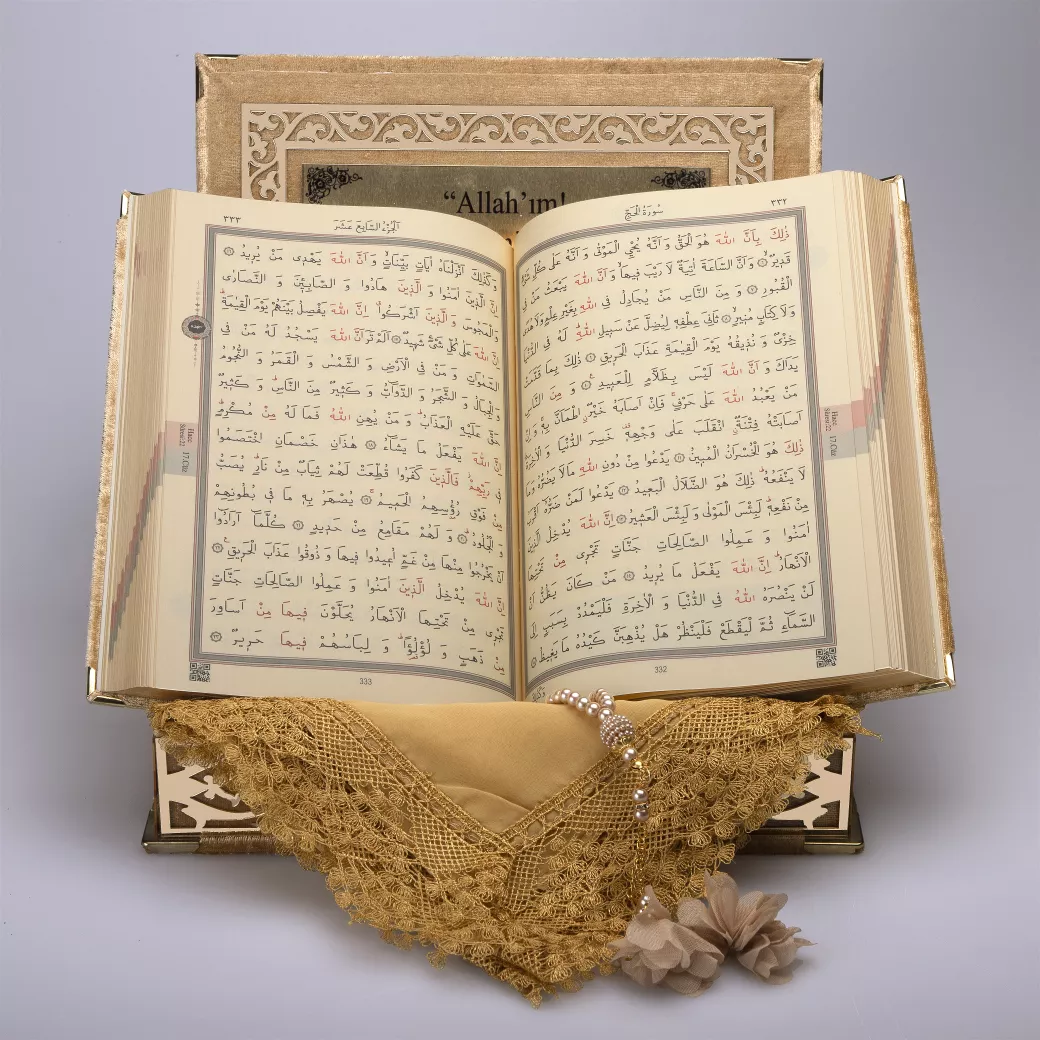 "Allah'ım!
سُورَةُ الْحَجِّ ٣٣٢
ذٰلِكَ بِاَنَّ اللّٰهَ هُوَ الْحَقُّ وَ اَنَّهُ يُحْيِ الْمَوْتٰى وَ اَنَّهُ عَلٰى كُلِّ شَيْءٍ
قَدِيرٌ ۝ وَ اَنَّ السَّاعَةَ اٰتِيَةٌ لَا رَيْبَ فِيهَا وَ اَنَّ اللّٰهَ يَبْعَثُ مَنْ فِي
الْقُبُورِ ۝ وَ مِنَ النَّاسِ مَنْ يُجَادِلُ فِي اللّٰهِ بِغَيْرِ عِلْمٍ وَلَا هُدًى
وَلَا كِتَابٍ مُنِيرٍ ۝ ثَانِيَ عِطْفِهِ لِيُضِلَّ عَنْ سَبِيلِ اللّٰهِ لَهُ فِي الدُّنْيَا
خِزْيٌ وَ نُذِيقُهُ يَوْمَ الْقِيٰمَةِ عَذَابَ الْحَرِيقِ ۝ ذٰلِكَ بِمَا قَدَّمَتْ
يَدَاكَ وَ اَنَّ اللّٰهَ لَيْسَ بِظَلَّامٍ لِلْعَبِيدِ ۝ وَ مِنَ النَّاسِ
مَنْ يَعْبُدُ اللّٰهَ عَلٰى حَرْفٍ فَاِنْ اَصَابَهُ خَيْرٌ اطْمَاَنَّ بِهِ وَ اِنْ
اَصَابَتْهُ فِتْنَةٌ انْقَلَبَ عَلٰى وَجْهِهِ خَسِرَ الدُّنْيَا وَ الْاٰخِرَةَ
ذٰلِكَ هُوَ الْخُسْرَانُ الْمُبِينُ ۝ يَدْعُوا مِنْ دُونِ اللّٰهِ مَا لَا يَضُرُّهُ وَمَا
لَا يَنْفَعُهُ ذٰلِكَ هُوَ الضَّلَالُ الْبَعِيدُ ۝ يَدْعُوا لَمَنْ ضَرُّهُ اَقْرَبُ
مِنْ نَفْعِهِ لَبِئْسَ الْمَوْلٰى وَ لَبِئْسَ الْعَشِيرُ ۝ اِنَّ اللّٰهَ يُدْخِلُ الَّذِينَ
اٰمَنُوا وَ عَمِلُوا الصَّالِحَاتِ جَنَّاتٍ تَجْرِى مِنْ تَحْتِهَا
الْاَنْهَارُ اِنَّ اللّٰهَ يَفْعَلُ مَا يُرِيدُ ۝ مَنْ كَانَ يَظُنُّ اَنْ
لَنْ يَنْصُرَهُ اللّٰهُ فِي الدُّنْيَا وَ الْاٰخِرَةِ فَلْيَمْدُدْ بِسَبَبٍ اِلَى
السَّمَاءِ ثُمَّ لْيَقْطَعْ فَلْيَنْظُرْ هَلْ يُذْهِبَنَّ كَيْدُهُ مَا يَغِيظُ ۝
332
Hacc
Sûresi:22 17.Cüz
اَلْجُزْءُ السَّابِعَ عَشَرَ ٣٣٣
وَ كَذٰلِكَ اَنْزَلْنَاهُ اٰيَاتٍ بَيِّنَاتٍ وَ اَنَّ اللّٰهَ يَهْدِى مَنْ يُرِيدُ ۝
اِنَّ الَّذِينَ اٰمَنُوا وَ الَّذِينَ هَادُوا وَ الصَّابِئِينَ وَ النَّصَارٰى
وَ الْمَجُوسَ وَ الَّذِينَ اَشْرَكُوا اِنَّ اللّٰهَ يَفْصِلُ بَيْنَهُمْ يَوْمَ الْقِيٰمَةِ
اِنَّ اللّٰهَ عَلٰى كُلِّ شَيْءٍ شَهِيدٌ ۝ اَلَمْ تَرَ اَنَّ اللّٰهَ يَسْجُدُ لَهُ مَنْ فِي
السَّمٰوَاتِ وَ مَنْ فِي الْاَرْضِ وَ الشَّمْسُ وَ الْقَمَرُ وَ النُّجُومُ
وَ الْجِبَالُ وَ الشَّجَرُ وَ الدَّوَابُّ وَ كَثِيرٌ مِنَ النَّاسِ وَ كَثِيرٌ
حَقَّ عَلَيْهِ الْعَذَابُ وَ مَنْ يُهِنِ اللّٰهُ فَمَا لَهُ مِنْ مُكْرِمٍ
اِنَّ اللّٰهَ يَفْعَلُ مَا يَشَاءُ ۝ هٰذَانِ خَصْمَانِ اخْتَصَمُوا
فِي رَبِّهِمْ فَالَّذِينَ كَفَرُوا قُطِّعَتْ لَهُمْ ثِيَابٌ مِنْ نَارٍ يُصَبُّ
مِنْ فَوْقِ رُؤُسِهِمُ الْحَمِيمُ ۝ يُصْهَرُ بِهِ مَا فِي بُطُونِهِمْ
وَ الْجُلُودُ ۝ وَ لَهُمْ مَقَامِعُ مِنْ حَدِيدٍ ۝ كُلَّمَا اَرَادُوا
اَنْ يَخْرُجُوا مِنْهَا مِنْ غَمٍّ اُعِيدُوا فِيهَا وَ ذُوقُوا عَذَابَ الْحَرِيقِ ۝
اِنَّ اللّٰهَ يُدْخِلُ الَّذِينَ اٰمَنُوا وَ عَمِلُوا الصَّالِحَاتِ جَنَّاتٍ
تَجْرِى مِنْ تَحْتِهَا الْاَنْهَارُ يُحَلَّوْنَ فِيهَا مِنْ اَسَاوِرَ
مِنْ ذَهَبٍ وَ لُؤْلُؤًا وَ لِبَاسُهُمْ فِيهَا حَرِيرٌ ۝
333
Hacc
Sûresi:22 17.Cüz